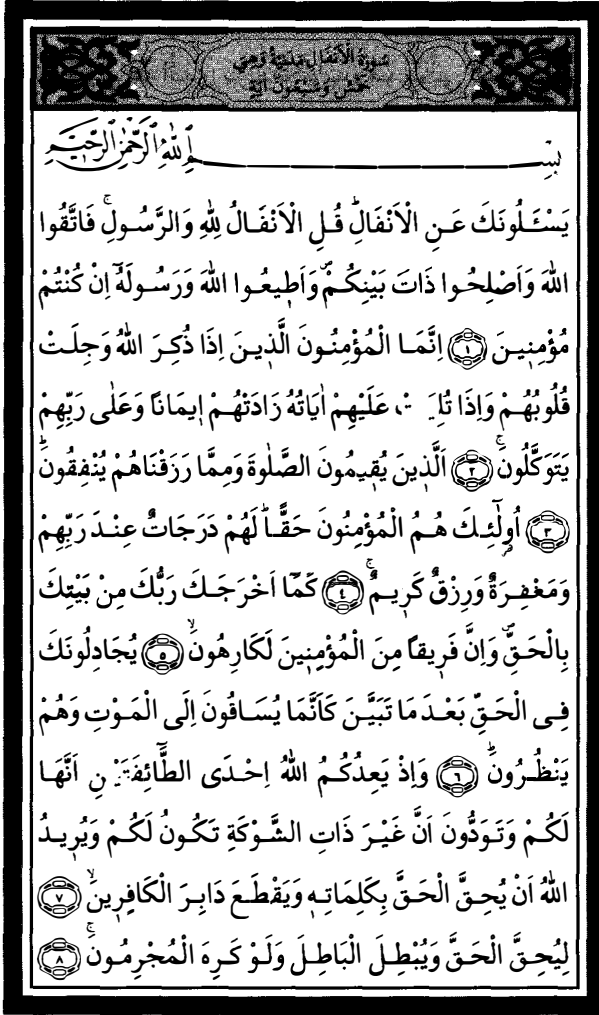 سُورَةُ الْاَنْفَالِ مَدَنِيَّةٌ وَهِيَ
خَمْسٌ وَسَبْعُونَ اٰيَةً
بِسْمِ اللهِ الرَّحْمٰنِ الرَّحِيمِ
يَسْـَٔلُونَكَ عَنِ الْاَنْفَالِۜ قُلِ الْاَنْفَالُ لِلهِ وَالرَّسُولِۚ فَاتَّقُوا
اللهَ وَاَصْلِحُوا ذَاتَ بَيْنِكُمْۖ وَاَطِيعُوا اللهَ وَرَسُولَهُٓ اِنْ كُنْتُمْ
مُؤْمِنِينَ ﴿١﴾ اِنَّمَا الْمُؤْمِنُونَ الَّذِينَ اِذَا ذُكِرَ اللهُ وَجِلَتْ
قُلُوبُهُمْ وَاِذَا تُلِيَتْ عَلَيْهِمْ اٰيَاتُهُ زَادَتْهُمْ اِيمَانًا وَعَلٰى رَبِّهِمْ
يَتَوَكَّلُونَۚ ﴿٢﴾ اَلَّذِينَ يُقِيمُونَ الصَّلٰوةَ وَمِمَّا رَزَقْنَاهُمْ يُنْفِقُونَۜ
﴿٣﴾ اُو۬لٰٓئِكَ هُمُ الْمُؤْمِنُونَ حَقًّاۜ لَهُمْ دَرَجَاتٌ عِنْدَ رَبِّهِمْ
وَمَغْفِرَةٌ وَرِزْقٌ كَرِيمٌۚ ﴿٤﴾ كَمَٓا اَخْرَجَكَ رَبُّكَ مِنْ بَيْتِكَ
بِالْحَقِّۖ وَاِنَّ فَرِيقًا مِنَ الْمُؤْمِنِينَ لَكَارِهُونَۙ ﴿٥﴾ يُجَادِلُونَكَ
فِى الْحَقِّ بَعْدَ مَا تَبَيَّنَ كَاَنَّمَا يُسَاقُونَ اِلَى الْمَوْتِ وَهُمْ
يَنْظُرُونَۜ ﴿٦﴾ وَاِذْ يَعِدُكُمُ اللهُ اِحْدَى الطَّٓائِفَتَيْنِ اَنَّهَا
لَكُمْ وَتَوَدُّونَ اَنَّ غَيْرَ ذَاتِ الشَّوْكَةِ تَكُونُ لَكُمْ وَيُرِيدُ
اللهُ اَنْ يُحِقَّ الْحَقَّ بِكَلِمَاتِهِ وَيَقْطَعَ دَابِرَ الْكَافِرِينَۙ ﴿٧﴾
لِيُحِقَّ الْحَقَّ وَيُبْطِلَ الْبَاطِلَ وَلَوْ كَرِهَ الْمُجْرِمُونَۚ ﴿٨﴾